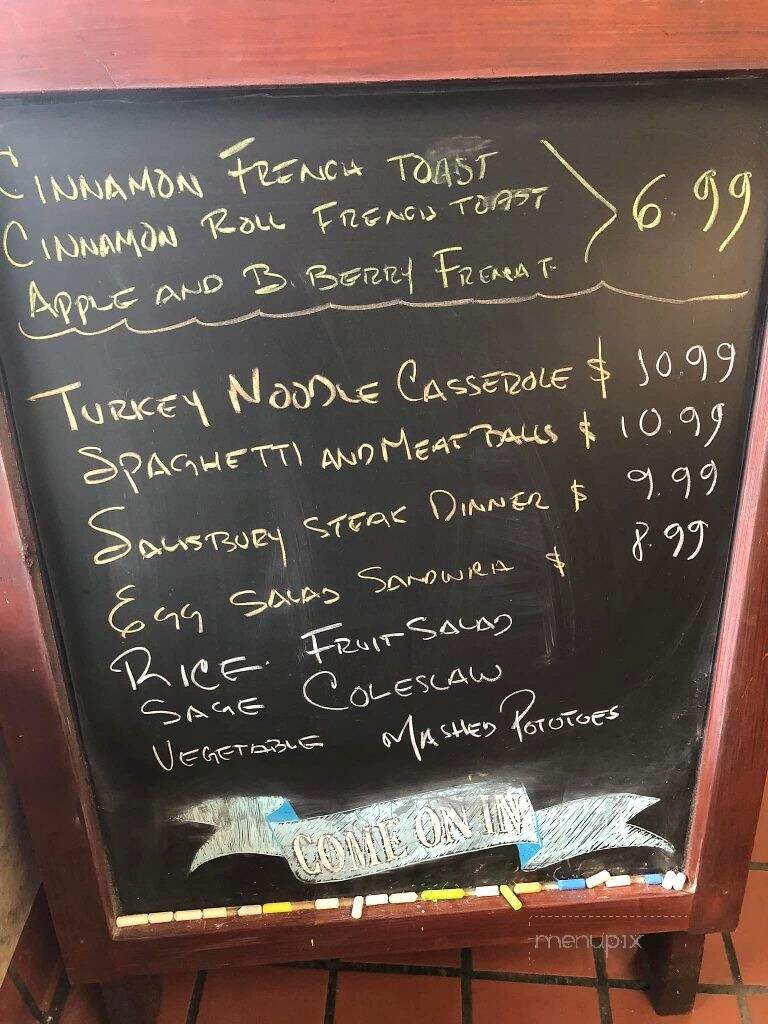 CINNAMON FRENCH TOAST
CINNAMON ROLL FRENCH TOAST 6.99
APPLE AND B. BERRY FRENCH T.
TURKEY NOODLE CASSEROLE $ 10.99
SPAGHETTI AND MEAT BALLS $ 10.99
SALISBURY STEAK DINNER $ 9.99
EGG SALAD SANDWICH $ 8.99
RICE. FRUIT SALAD
SAGE COLESLAW
VEGETABLE MASHED POTOTOES
COME ON IN
menupix